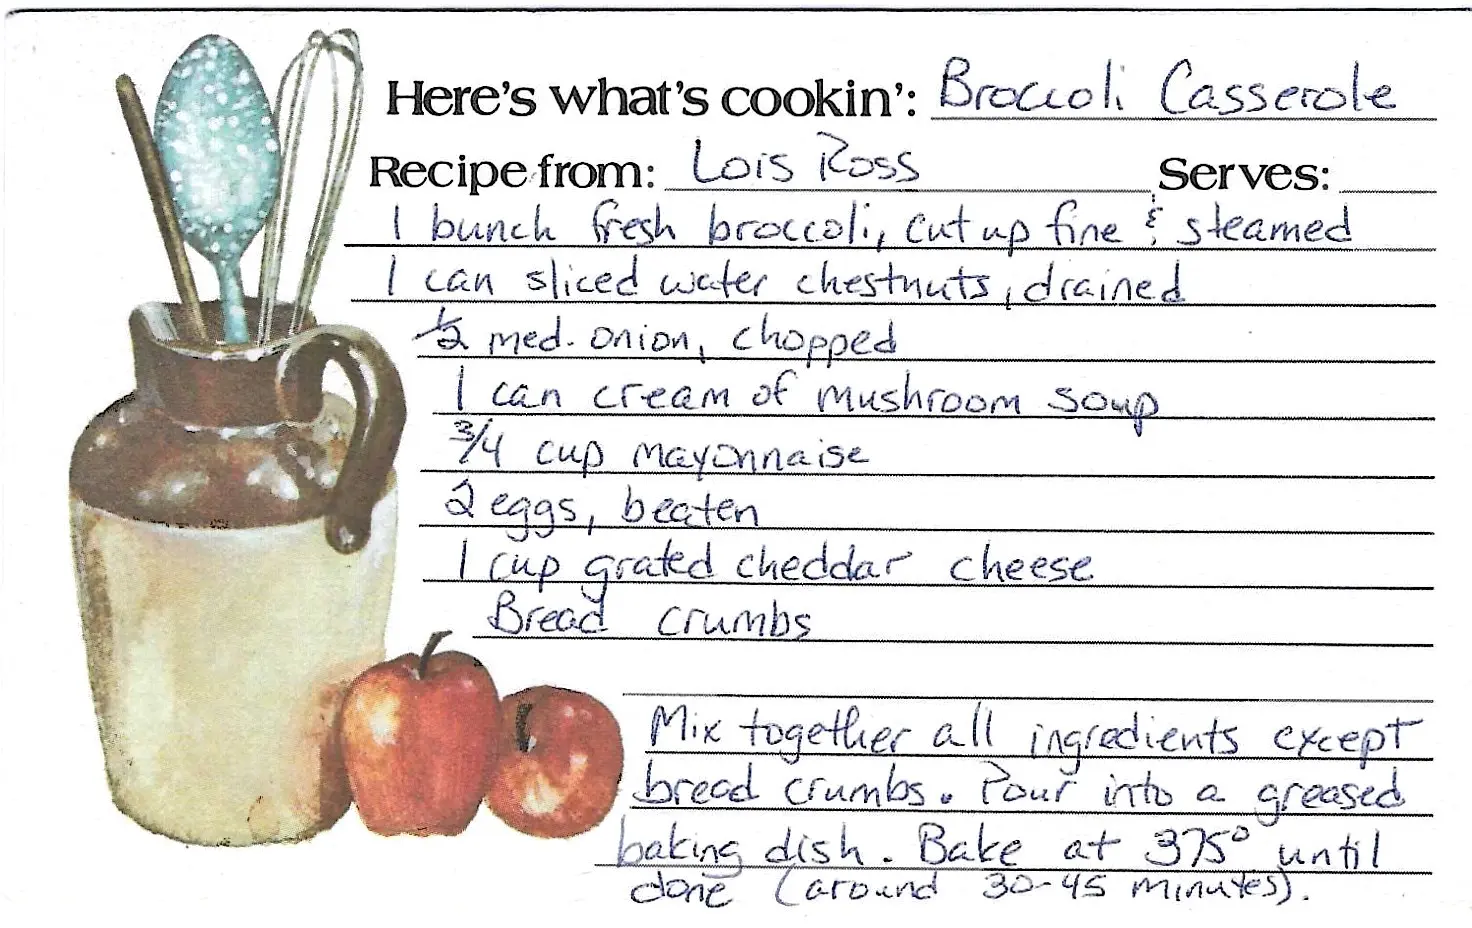 Here's what's cookin': Broccoli Casserole
Recipe from: Lois Ross Serves:
1 bunch fresh broccoli, cut up fine & steamed
1 can sliced water chestnuts, drained
1/2 med. onion, chopped
1 can cream of mushroom soup
3/4 cup mayonnaise
2 eggs, beaten
1 cup grated cheddar cheese
Bread crumbs
Mix together all ingredients except
bread crumbs. Pour into a greased
baking dish. Bake at 375° until
done (around 30-45 minutes).